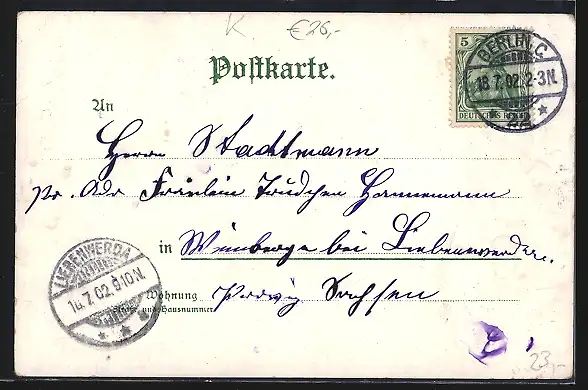 K. €26,-
Postkarte.
5
DEUTSCHES REICH
BERLIN, C
18.7.02. 2-3N.
An
Herrn Stadtmann
pr. Adr Fräulein Trudchen Hannemann
in Weinberge bei Liebenwerda
LIEBENWERDA
7.02. 9-10N.
Wohnung
(Straße und Hausnummer)
Provinz Sachsen
23,-